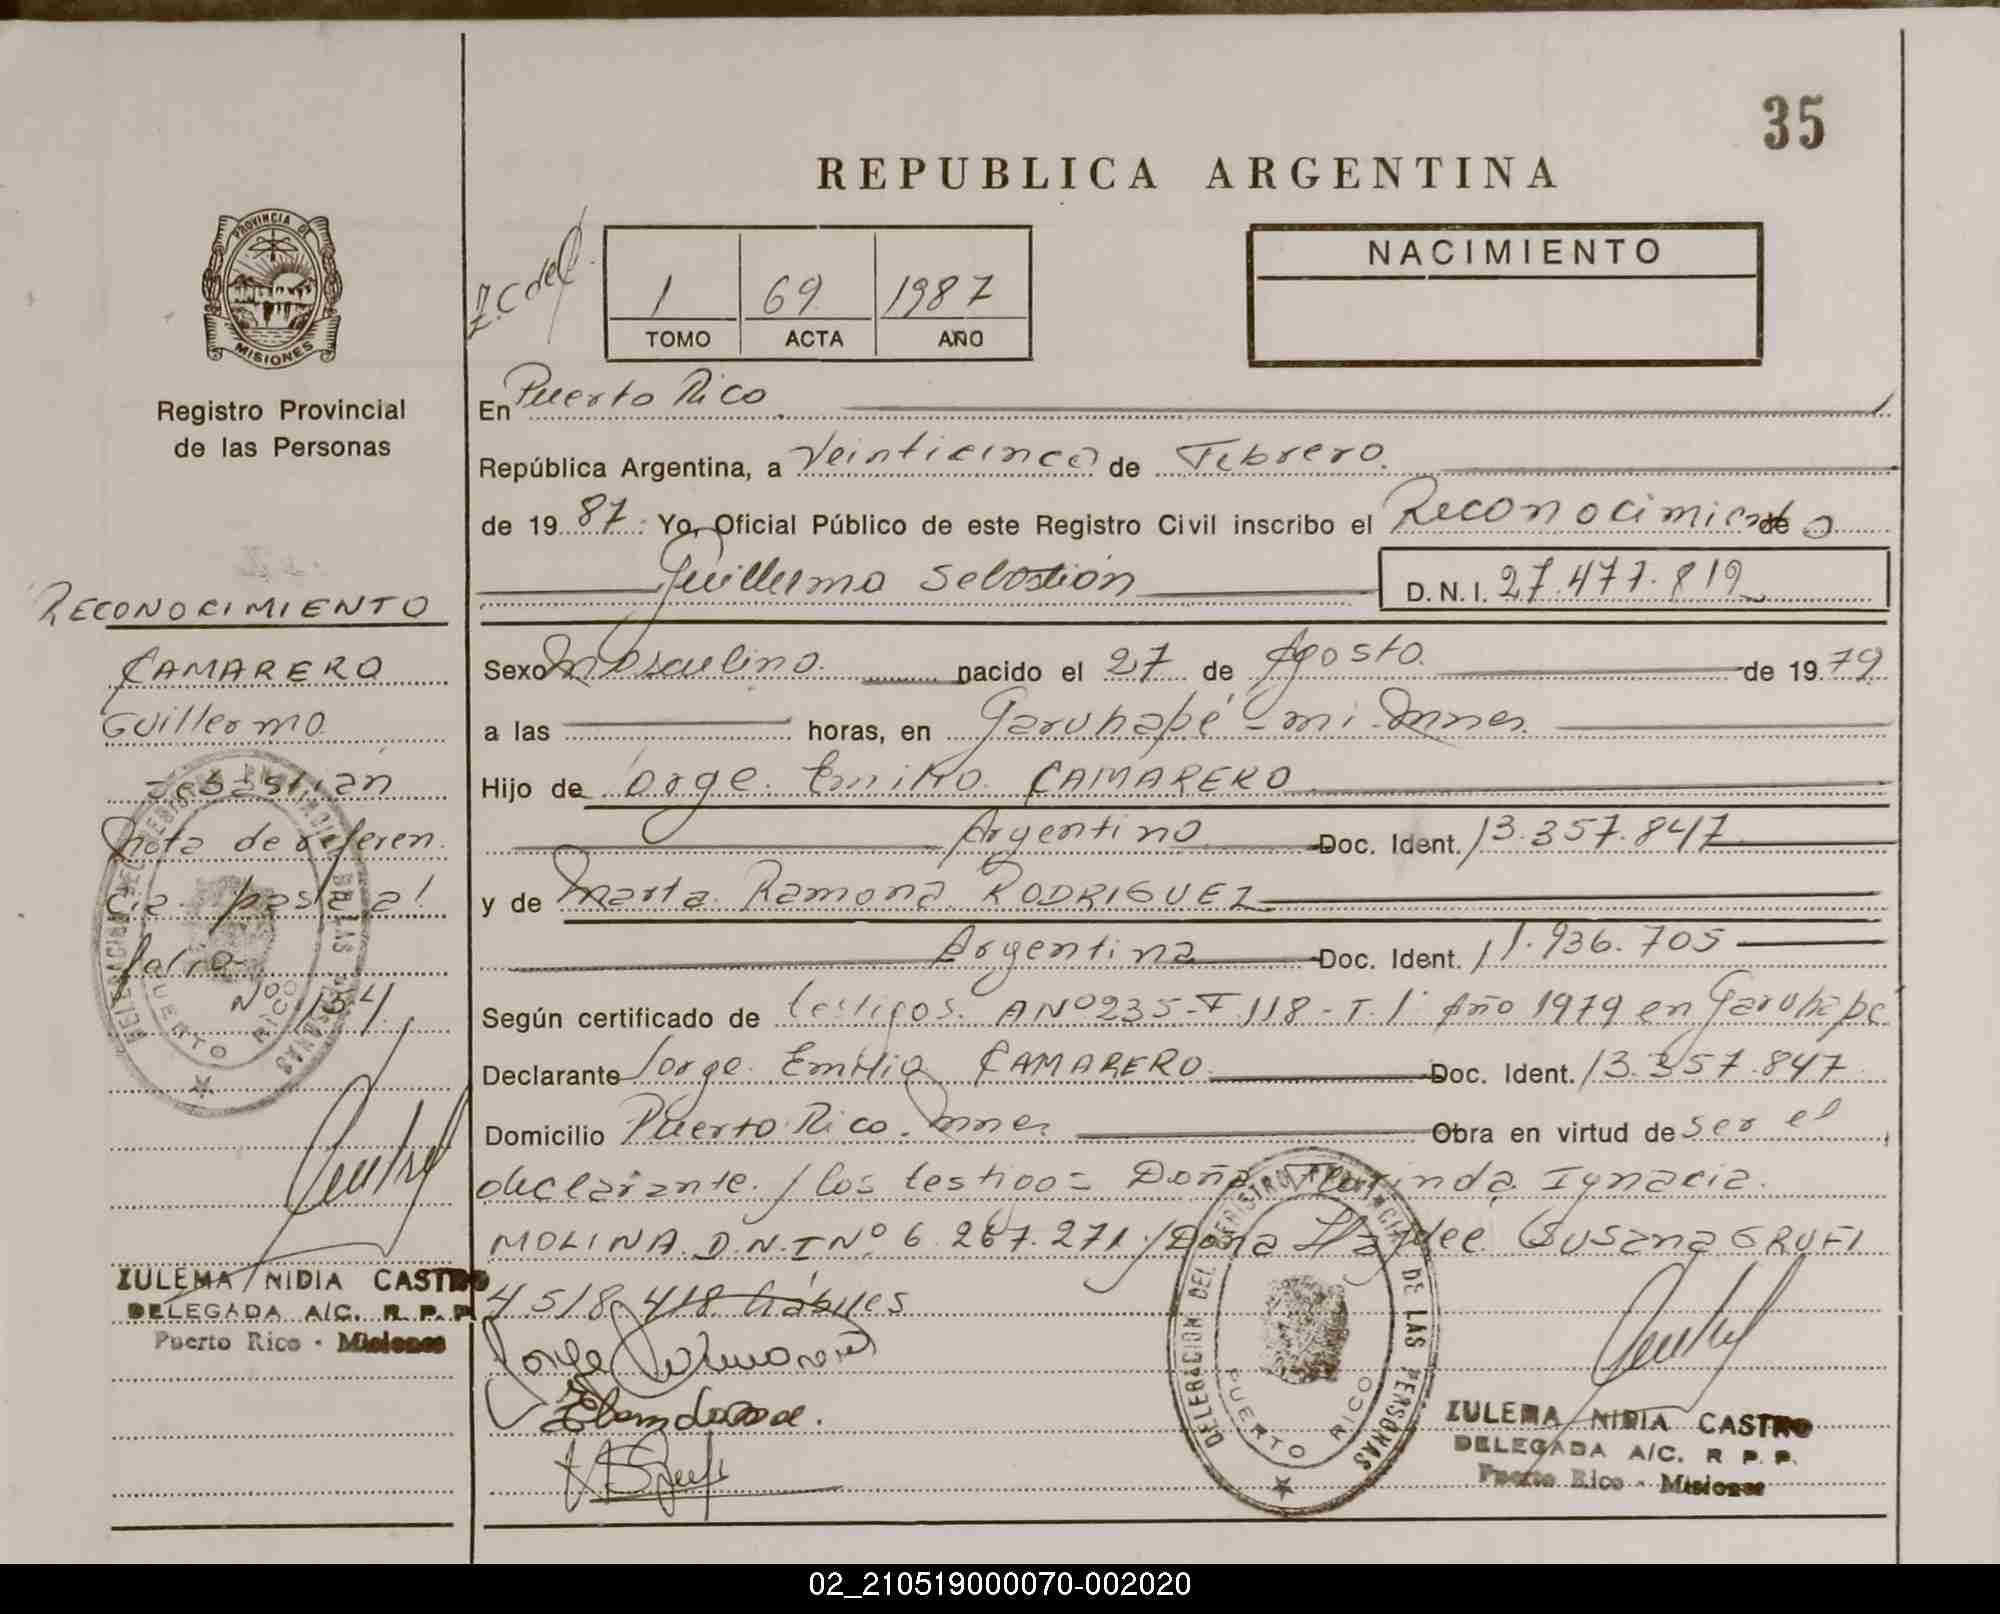 35
REPUBLICA ARGENTINA
PROVINCIA DE
MISIONES
Registro Provincial
de las Personas
1 69 1987
TOMO ACTA AÑO
NACIMIENTO
En Puerto Rico
República Argentina, a Veinticinco de Febrero.
de 19 87. Yo, Oficial Público de este Registro Civil inscribo el Reconocimiento de
Guillermo Sebastián D.N.I. 27.477.819
Sexo Masculino. nacido el 27 de Agosto. de 1979
a las horas, en Garuhapé-mi-Mnes.
Hijo de Jorge Emilio CAMARERO
Argentino Doc. Ident. 13.357.847
y de Marta Ramona RODRIGUEZ
Argentina Doc. Ident. 11.936.705
Según certificado de testigos. A Nº 235-F 118-T. 1º Año 1979 en Garuhapé
Declarante Jorge Emilio CAMARERO Doc. Ident. 13.357.847
Domicilio Puerto Rico. Mnes. Obra en virtud de ser el
declarante / los testigos Doña Florinda Ignacia.
MOLINA D.N.I Nº 6 267.271 / Doña Haydee Susana GRUFI
4 518 418 hábiles
RECONOCIMIENTO
CAMARERO
Guillermo
Sebastián
Nota de referen.
cia
Nº 154
DELEGACION DEL REGISTRO PROVINCIAL DE LAS PERSONAS
PUERTO RICO
ZULEMA NIDIA CASTRO
DELEGADA A/C. R. P. P.
Puerto Rico - Misiones
DELEGACION DEL REGISTRO PROVINCIAL DE LAS PERSONAS
PUERTO RICO
ZULEMA NIDIA CASTRO
DELEGADA A/C. R P. P.
Puerto Rico - Misiones
02_210519000070-002020